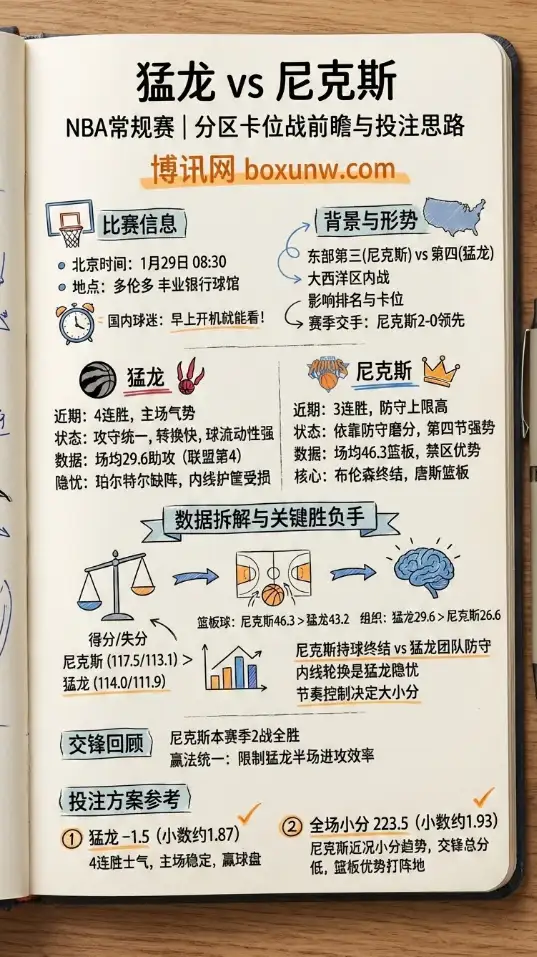 猛龙 vs 尼克斯
NBA常规赛 | 分区卡位战前瞻与投注思路
博讯网 boxunw.com
比赛信息
北京时间：1月29日 08:30
地点：多伦多 丰业银行球馆
国内球迷：早上开机就能看！
背景与形势
东部第三(尼克斯) vs 第四(猛龙)
大西洋区内战
影响排名与卡位
赛季交手：尼克斯2-0领先
猛龙
近期：4连胜，主场气势
状态：攻守统一，转换快，球流动性强
数据：场均29.6助攻（联盟第4）
隐忧：珀尔特尔缺阵，内线护筐受损
尼克斯
近期：3连胜，防守上限高
状态：依靠防守磨分，第四节强势
数据：场均46.3篮板，禁区优势
核心：布伦森终结，唐斯篮板
数据拆解与关键胜负手
得分/失分
尼克斯 (117.5/113.1) >
猛龙 (114.0/111.9)
篮板球：尼克斯46.3 > 猛龙43.2 组织：猛龙29.6 > 尼克斯26.6
尼克斯持球终结 vs 猛龙团队防守
内线轮换是猛龙隐忧
节奏控制决定大小分
交锋回顾
尼克斯本赛季2战全胜
赢法统一：限制猛龙半场进攻效率
投注方案参考
① 猛龙 -1.5（小数约1.87）
4连胜士气，主场稳定，赢球盘
② 全场小分 223.5（小数约1.93）
尼克斯近况小分趋势，交锋总分
低，篮板优势打阵地